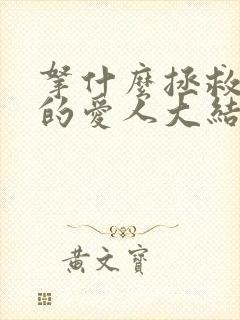 拏什麼拯救
的愛人大結
黃文寶